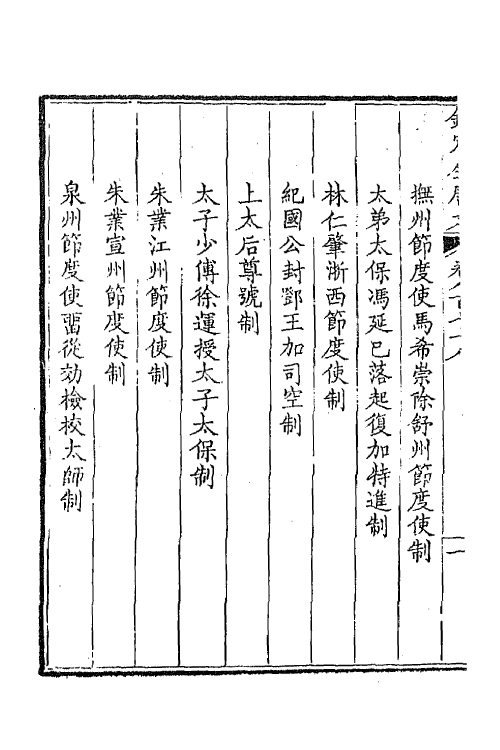 欽定全唐文 卷八百七十八
撫州節度使馬希崇除舒州節度使制
太弟太保馮延巳落起復加特進制
林仁肇浙西節度使制
紀國公封鄧王加司空制
上太后尊號制
太子少傅徐運授太子太保制
朱業江州節度使制
朱業宣州節度使制
泉州節度使留從効檢校太師制
一